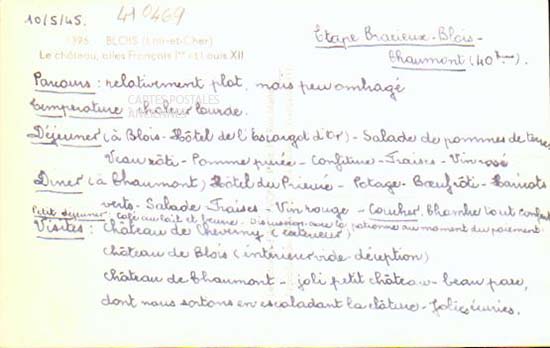 10/5/45.
410469
Étape Bracieux-Blois-
Chaumont (40 kms).
396. BLOIS (Loir-et-Cher)
Le château, ailes François Ier et Louis XII
Parcours : relativement plat, mais peu ombragé
CARTES POSTALES
Température : chaleur lourde.
Déjeuner (à Blois - Hôtel de l'Escargot d'Or) - Salade de pommes de terre
Veau rôti - Pomme purée - Confiture - Fraises - Vin rosé
Dîner (à Chaumont) Hôtel du Prieuré - Potage - Bœuf rôti - Haricots
verts - Salade Fraises - Vin rouge - Coucher, Chambre tout confort
Petit déjeuner : Café au lait et beurre. Discussion avec la patronne au moment du paiement.
Visites : Château de Cheverny (extérieur)
château de Blois (intérieur vide déception)
château de Chaumont - joli petit château - beau parc,
dont nous sortons en escaladant la clôture - Jolies écuries.